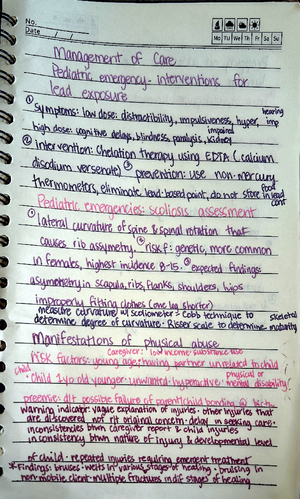 No.
Date
Mo Tu We Th Fr Sa Su
Management of Care
Pediatric emergency- interventions for
lead exposure
① Symptoms: low dose: distractibility, impulsiveness, hyper, hearing imp
high dose: cognitive delays, blindness, paralysis, kidney impaired
② intervention: Chelation therapy using EDTA (calcium
disodium versenate) ③ prevention: use non-mercury
thermometers, eliminate lead-based paint, do not store food in lead cont
Pediatric emergencies: scoliosis assessment
① lateral curvature of spine & spinal rotation that
causes rib assymetry ② risk f: genetic, more common
in females, highest incidence 8-15. ③ expected findings:
asymmetry in scapula, ribs, flanks, shoulders, hips
improperly fitting clothes (one leg shorter)
measure curvature w/ scoliometer = Cobb technique to
determine degree of curvature. Risser scale to determine skeletal maturity
Manifestations of physical abuse
caregiver: low income. substance use
Risk factors: young age: having partner unrelated to child
child: Child <1 yo old younger. unwanted. hyperactive. physical or mental disability
preemie: d/t possible failure of parent/child bonding @ birth
warning indicator: vague explanation of injuries. other injuries that
are discovered not r/t original concern: delay in seeking care.
inconsistencies btwn caregiver report & child injuries.
inconsistency btwn nature of injury & developmental level
of child. repeated injuries requiring emergency treatment
* Findings: bruises. welts in various stages of healing. bruising in
non-mobile client. multiple fractures in dif stages of healing